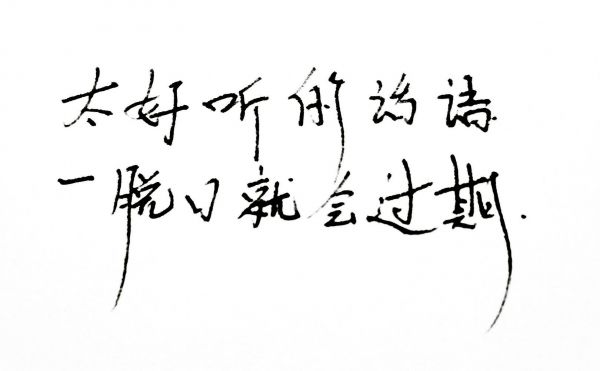 太好听的话语
一脱口就会过期.